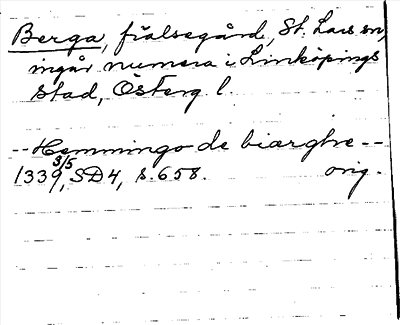 Berga, frälsegård, St. Lars sn,
ingår numera i Linköpings
stad, Österg l.
-- Hemmingo de biærghe --
1339 3/5, SD4, s. 658. orig.